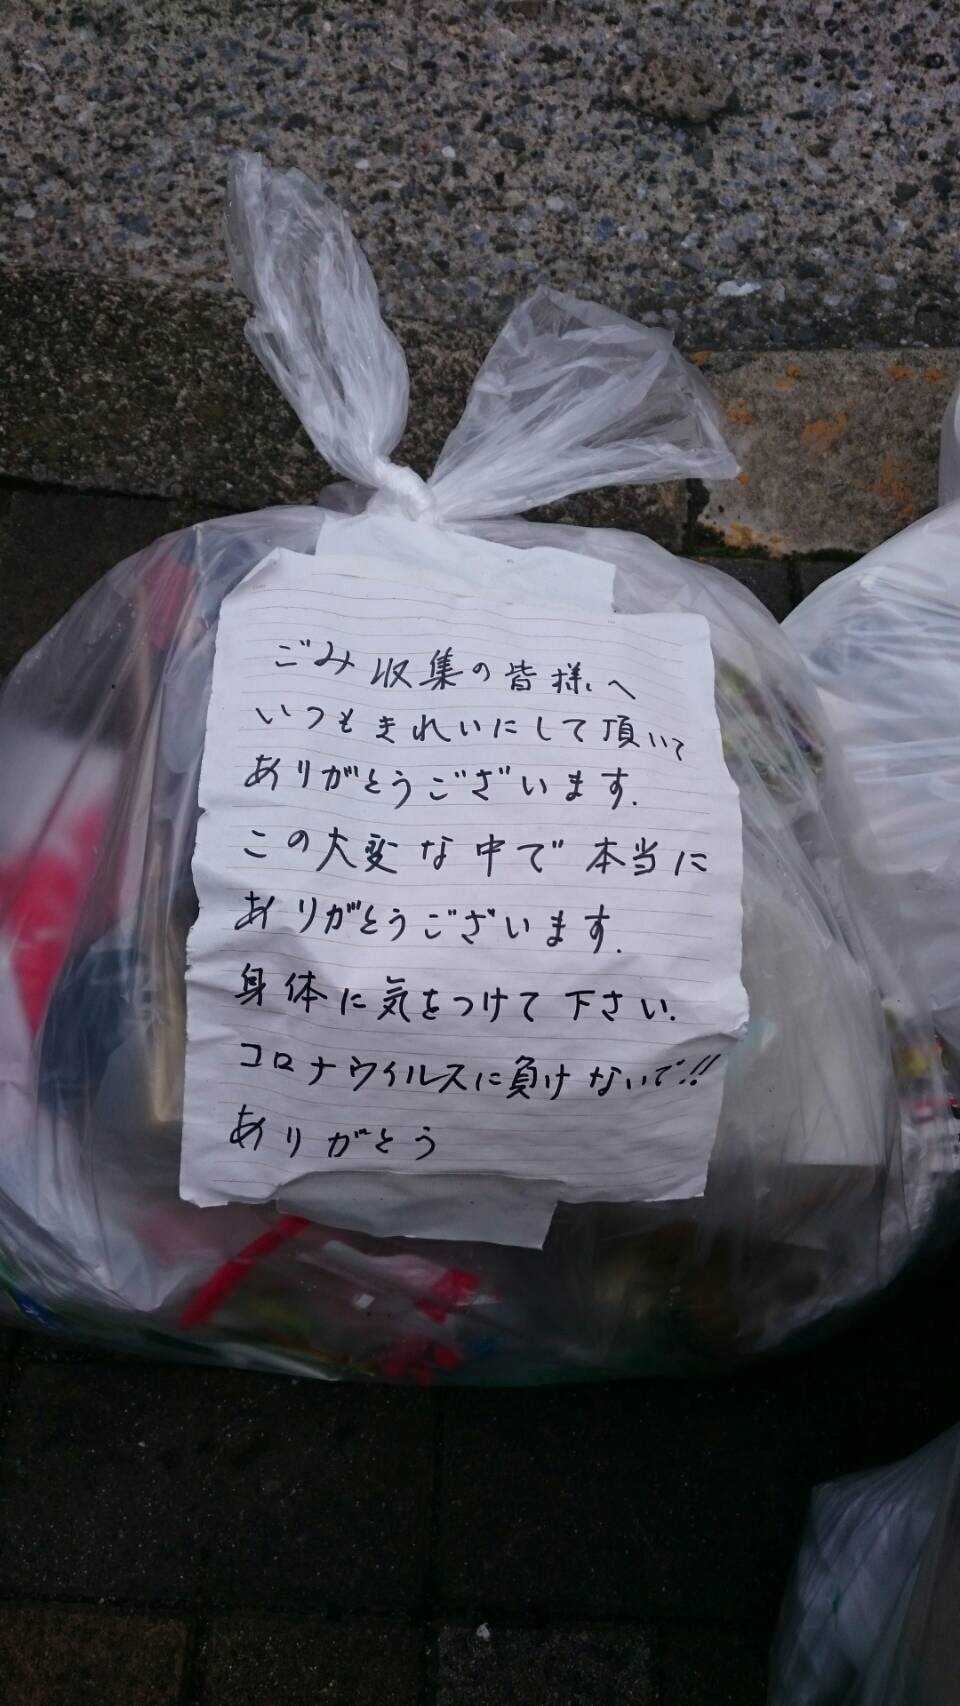 ごみ収集の皆様へ
いつもきれいにして頂いて
ありがとうございます.
この大変な中で本当に
ありがとうございます.
身体に気をつけて下さい.
コロナウイルスに負けないで!!
ありがとう